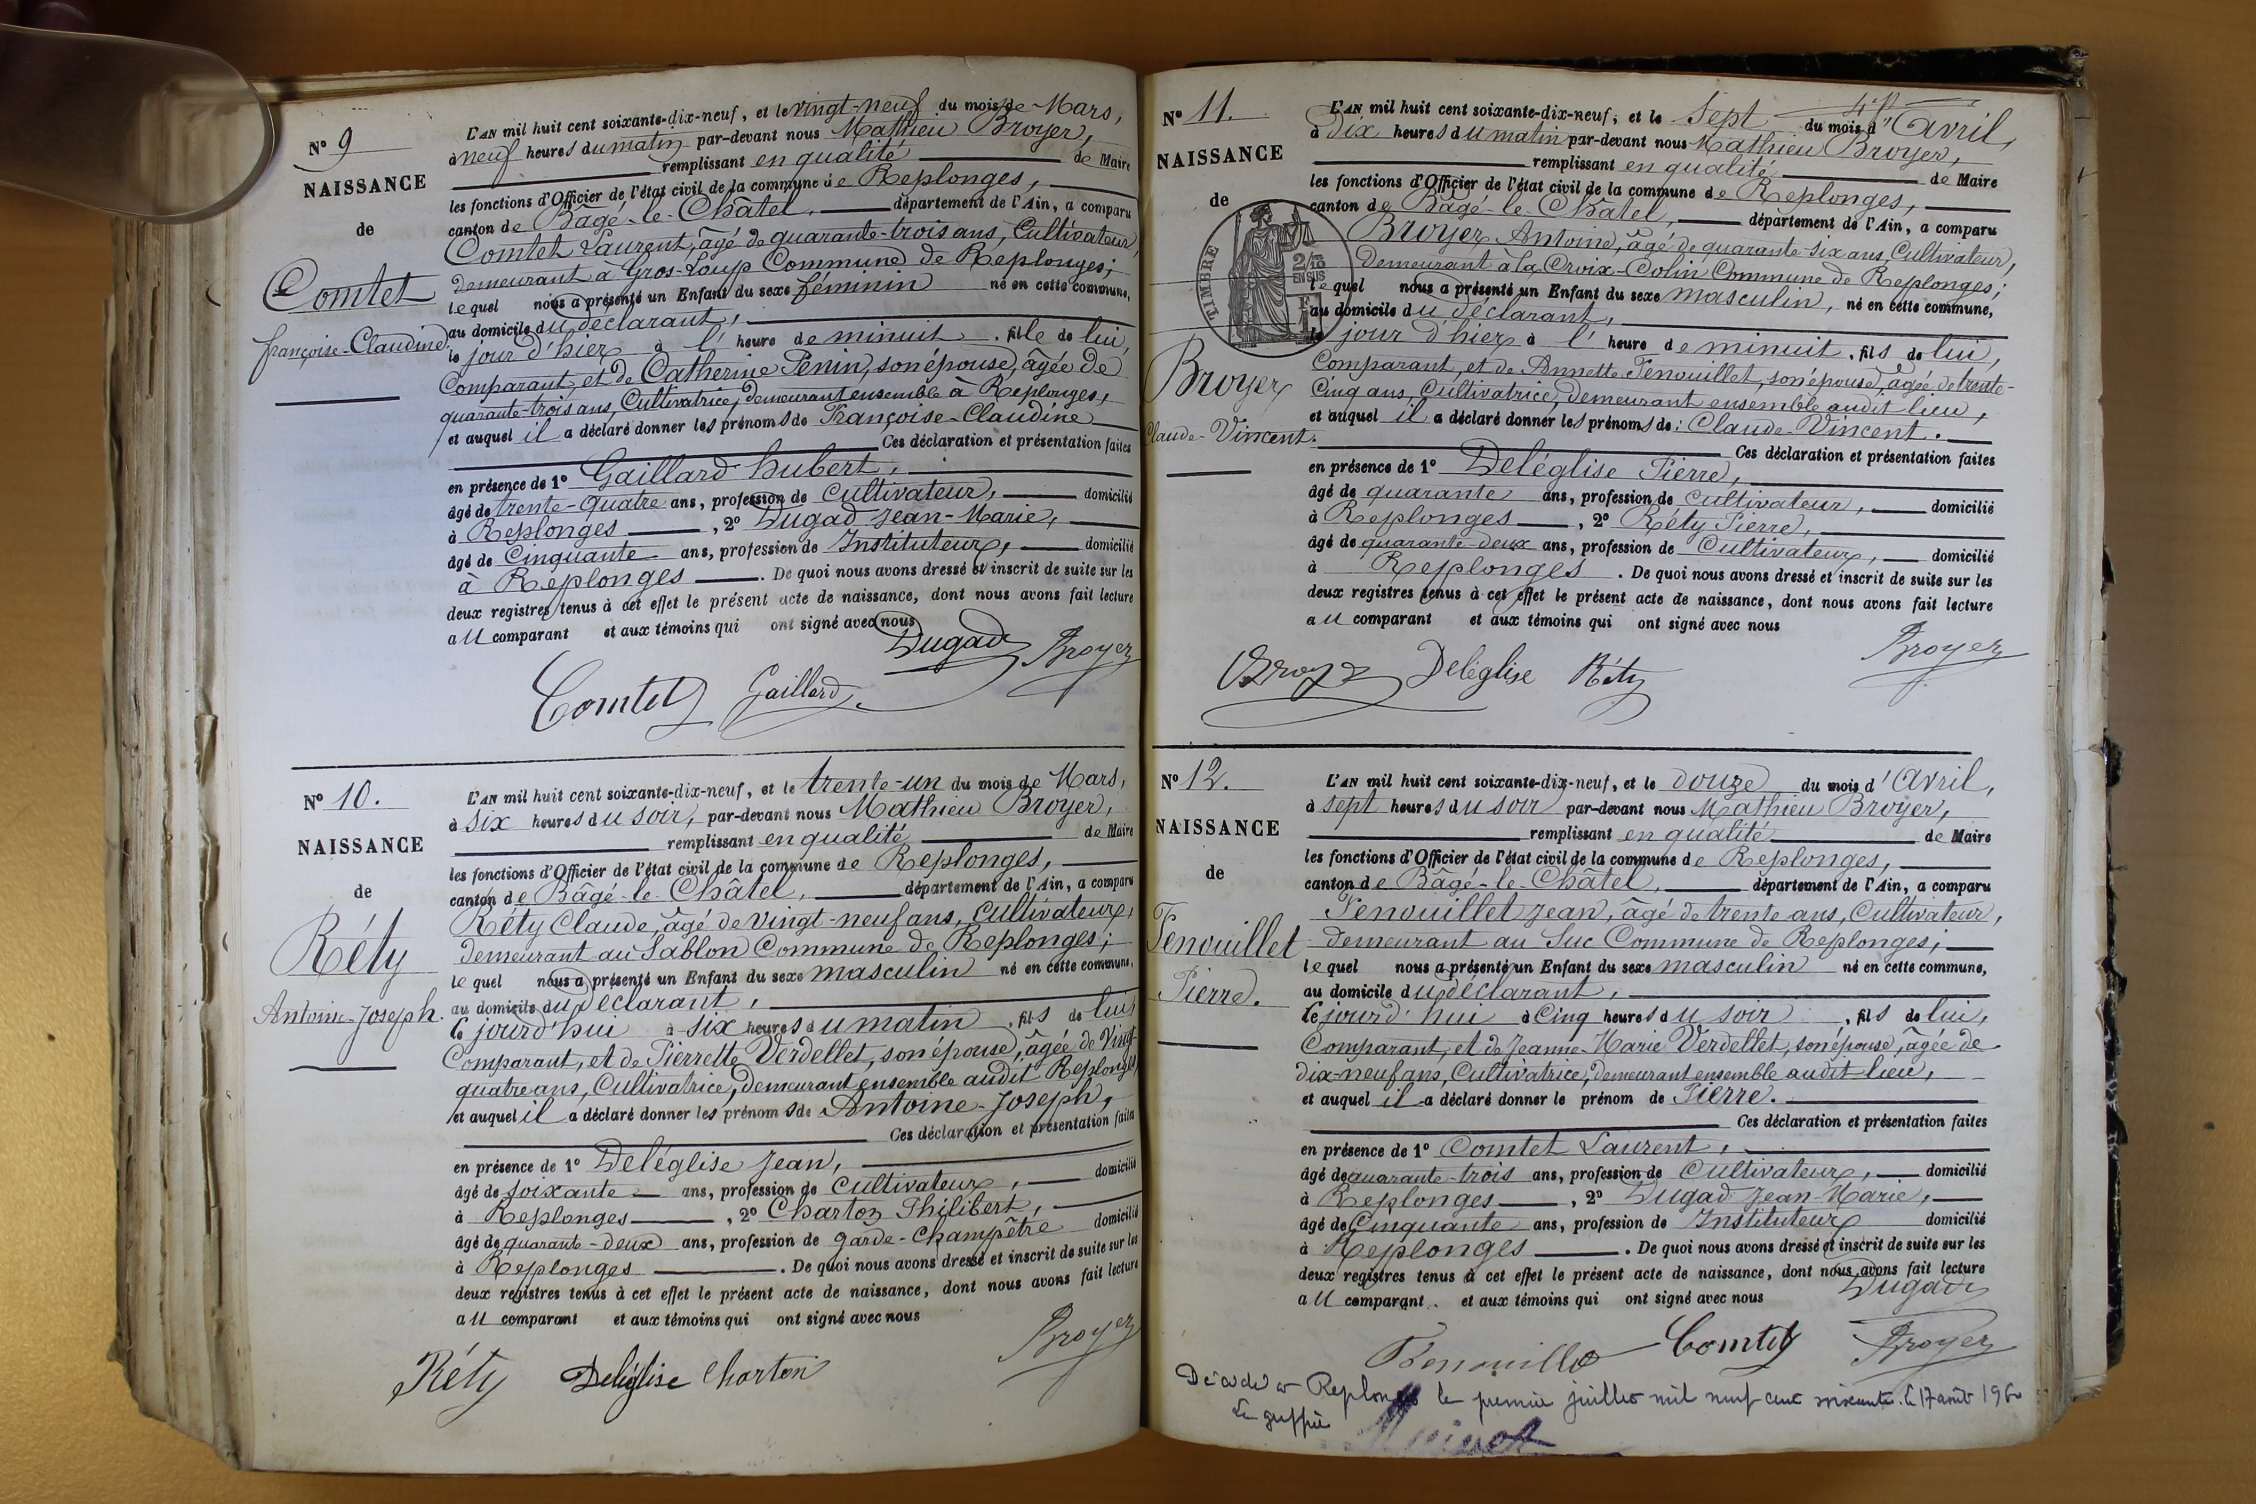 N° 9
NAISSANCE
de
Comtet
françoise-Claudine.
L'AN mil huit cent soixante-dix-neuf, et le vingt-neuf du mois de Mars,
à neuf heures du matin par-devant nous Mathieu Broyer,
remplissant en qualité de Maire
les fonctions d'Officier de l'état civil de la commune de Replonges,
canton de Bâgé-le-Châtel, département de l'Ain, a comparu
Comtet Laurent, âgé de quarante-trois ans, Cultivateur,
demeurant à Gros-Loup Commune de Replonges;
lequel nous a présenté un Enfant du sexe féminin né en cette commune,
au domicile du déclarant,
le jour d'hier à l' heure de minuit, fille de lui,
Comparant, et de Catherine Fenin, son épouse, âgée de
quarante-trois ans, Cultivatrice, demeurant ensemble à Replonges,
et auquel il a déclaré donner les prénoms de Françoise-Claudine
Ces déclaration et présentation faites
en présence de 1° Gaillard hubert,
âgé de trente-quatre ans, profession de Cultivateur, domicilié
à Replonges, 2° Dugad Jean-Marie,
âgé de Cinquante ans, profession de Instituteur, domicilié
à Replonges. De quoi nous avons dressé et inscrit de suite sur les
deux registres tenus à cet effet le présent acte de naissance, dont nous avons fait lecture
au comparant et aux témoins qui ont signé avec nous
Dugad Broyer
Comtet Gaillard
N° 10.
NAISSANCE
de
Réty
Antoine-Joseph.
L'AN mil huit cent soixante-dix-neuf, et le trente-un du mois de Mars,
à six heures du soir, par-devant nous Mathieu Broyer,
remplissant en qualité de Maire
les fonctions d'Officier de l'état civil de la commune de Replonges,
canton de Bâgé-le-Châtel, département de l'Ain, a comparu
Réty Claude, âgé de vingt-neuf ans, Cultivateur,
demeurant au Sablon Commune de Replonges;
lequel nous a présenté un Enfant du sexe masculin né en cette commune,
au domicile du déclarant,
le jourd'hui à six heures du matin, fils de lui,
Comparant, et de Pierrette Verdellet, son épouse, âgée de Vingt-
quatre ans, Cultivatrice, demeurant ensemble audit Replonges
et auquel il a déclaré donner les prénoms de Antoine-Joseph,
Ces déclaration et présentation faites
en présence de 1° Deléglise Jean,
âgé de soixante ans, profession de Cultivateur, domicilié
à Replonges, 2° Charton Philibert,
âgé de quarante-deux ans, profession de garde-Champêtre domicilié
à Replonges. De quoi nous avons dressé et inscrit de suite sur les
deux registres tenus à cet effet le présent acte de naissance, dont nous avons fait lecture
au comparant et aux témoins qui ont signé avec nous
Broyer
Réty Deléglise Charton
N° 11.
NAISSANCE
de
TIMBRE
2/10
EN SUS
Broyer
Claude-Vincent.
L'AN mil huit cent soixante-dix-neuf, et le Sept du mois d'Avril,
à dix heures du matin par-devant nous Mathieu Broyer,
remplissant en qualité de Maire
les fonctions d'Officier de l'état civil de la commune de Replonges,
canton de Bâgé-le-Châtel, département de l'Ain, a comparu
Broyer Antoine, âgé de quarante-six ans, Cultivateur,
demeurant à la Croix-Colin Commune de Replonges;
lequel nous a présenté un Enfant du sexe masculin, né en cette commune,
au domicile du déclarant,
le jour d'hier à l' heure de minuit, fils de lui,
Comparant, et de Annette Fenouillet, son épouse, âgée de trente-
Cinq ans, Cultivatrice, demeurant ensemble audit lieu,
et auquel il a déclaré donner les prénoms de: Claude-Vincent.
Ces déclaration et présentation faites
en présence de 1° Deléglise Pierre,
âgé de quarante ans, profession de Cultivateur, domicilié
à Replonges, 2° Réty Pierre,
âgé de quarante-deux ans, profession de Cultivateur, domicilié
à Replonges. De quoi nous avons dressé et inscrit de suite sur les
deux registres tenus à cet effet le présent acte de naissance, dont nous avons fait lecture
au comparant et aux témoins qui ont signé avec nous
Broyer
Broyer Deléglise Réty
N° 12.
NAISSANCE
de
Fenouillet
Pierre.
L'AN mil huit cent soixante-dix-neuf, et le douze du mois d'Avril,
à sept heures du soir par-devant nous Mathieu Broyer,
remplissant en qualité de Maire
les fonctions d'Officier de l'état civil de la commune de Replonges,
canton de Bâgé-le-Châtel, département de l'Ain, a comparu
Fenouillet Jean, âgé de trente ans, Cultivateur,
demeurant au Suc Commune de Replonges;
lequel nous a présenté un Enfant du sexe masculin né en cette commune,
au domicile du déclarant,
le jourd'hui à Cinq heures du soir, fils de lui,
Comparant, et de Jeanne-Marie Verdellet, son épouse, âgée de
dix-neuf ans, Cultivatrice, demeurant ensemble audit lieu,
et auquel il a déclaré donner le prénom de Pierre.
Ces déclaration et présentation faites
en présence de 1° Comtet Laurent,
âgé de quarante-trois ans, profession de Cultivateur, domicilié
à Replonges, 2° Dugad Jean-Marie,
âgé de Cinquante ans, profession de Instituteur domicilié
à Replonges. De quoi nous avons dressé et inscrit de suite sur les
deux registres tenus à cet effet le présent acte de naissance, dont nous avons fait lecture
au comparant et aux témoins qui ont signé avec nous
Dugad
Fenouillet Comtet Broyer
Décédé à Replonges le premier juillet mil neuf cent soixante. le 17 août 1960
Le greffier